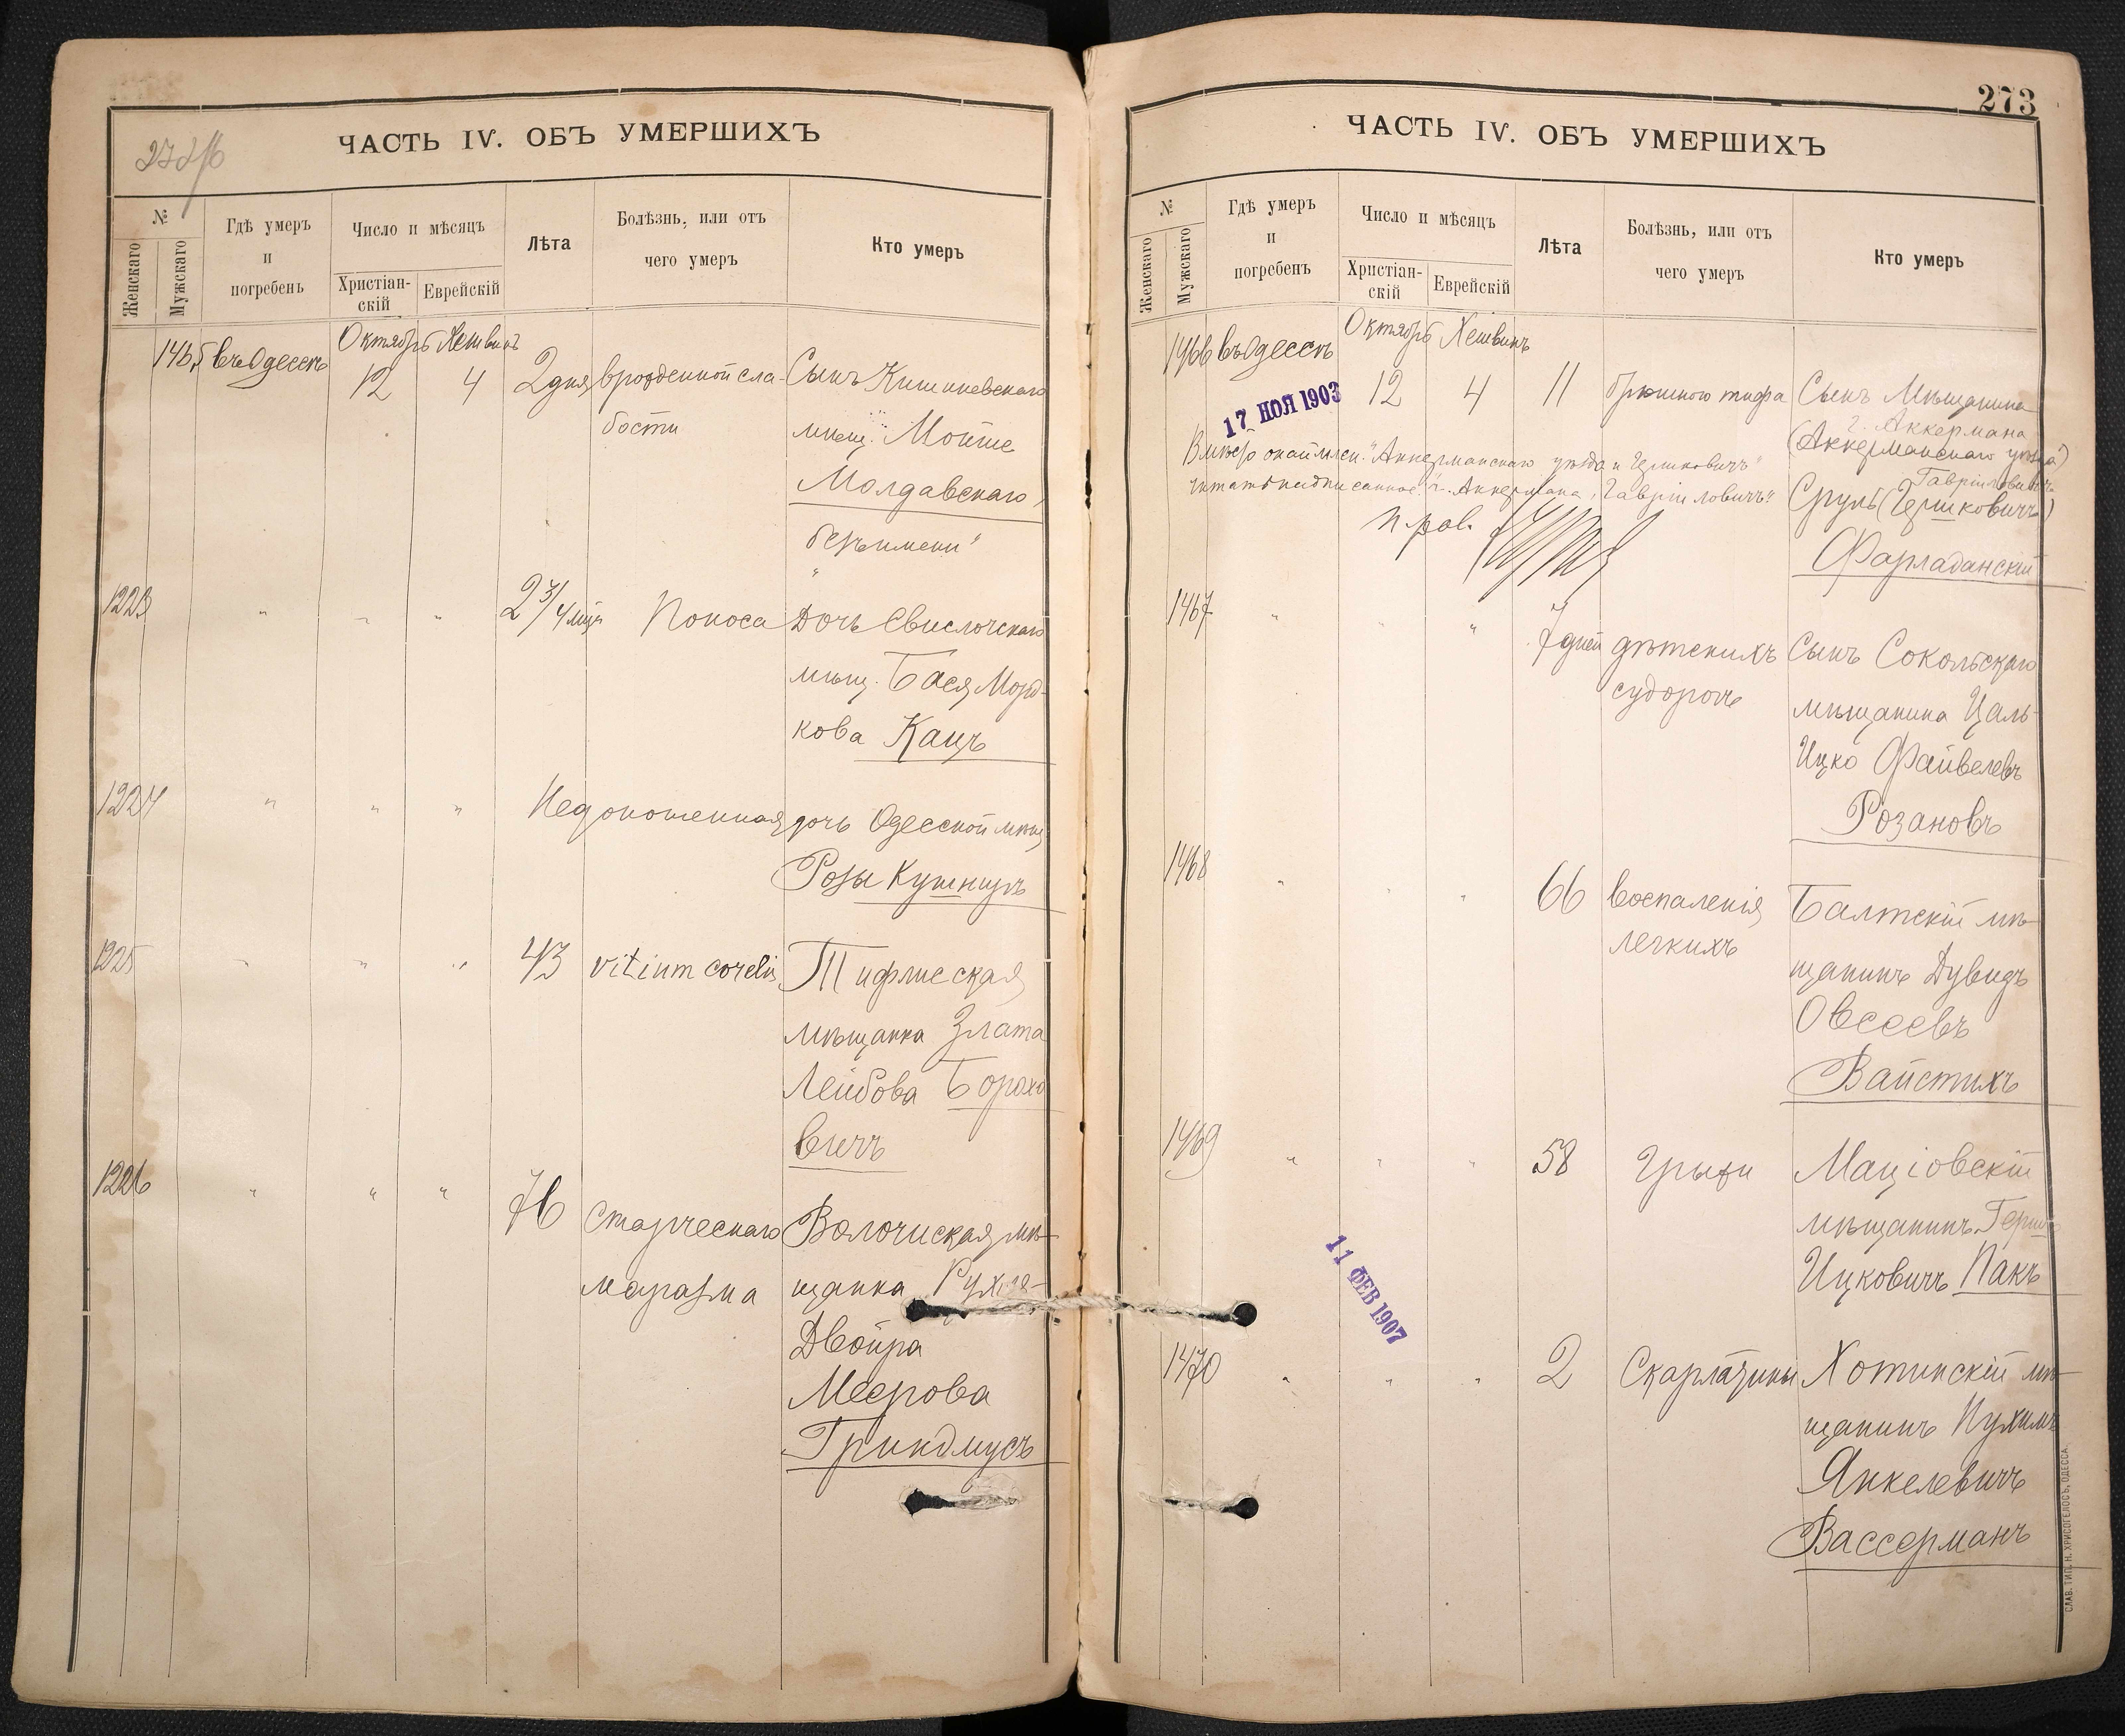 272/б
ЧАСТЬ IV. ОБЪ УМЕРШИХЪ
№
Женскаго
Мужскаго
Гдѣ умеръ
и
погребенъ
Число и мѣсяцъ
Христіан-
скій
Еврейскій
Лѣта
Болѣзнь, или отъ
чего умеръ
Кто умеръ
Октябрь Хешвинъ
1465 въ Одессѣ 12 4 2 дня врожденной сла- Сынъ Кишиневскаго
бости мѣщ. Мойше
Молдавскаго,
безъимени"
1223 " " " 2 3/4 мѣс Поноса Дочь Свислочскаго
мѣщ. Бася Морд-
кова Кацъ
1224 " " " Недоношенная дочь Одесской мѣщ.
Розы Кушниръ
1225 " " " 43 vitium cordis Тифлисская
мѣщанка Злата
Лейбова Борохо
вичъ
1226 " " " 76 Старческаго Волочиская мѣ-
маразма щанка Рухля-
Двойра
Меерова
Гриндмусъ
273
ЧАСТЬ IV. ОБЪ УМЕРШИХЪ
№
Женскаго
Мужскаго
Гдѣ умеръ
и
погребенъ
Число и мѣсяцъ
Христіан-
скій
Еврейскій
Лѣта
Болѣзнь, или отъ
чего умеръ
Кто умеръ
Октябрь Хешвинъ
1466 въ Одессѣ 12 4 11 брюшного тифа Сынъ Мѣщанина
17 НОЯ 1903
г. Аккермана
(Аккерманскаго уѣзда)
Вмѣсто "Аккерманскаго уѣзда и Гершковичъ"
читать надписанное: "г. Аккермана, Гавріиловичъ"
Гавріиловичъ
Сруль (Гершковичъ)
Фарладанскій
1467 " " " 7 дней дѣтскихъ Сынъ Сокольскаго
судорогъ мѣщанина Цаль-
Ицко Файвелевъ
Розановъ
1468 " " " 66 воспаленія Балтскій мѣ-
легкихъ щанинъ Дувидъ
Овсеевъ
Вайстихъ
1469 " " " 58 Грыжи Маціовскій
мѣщанинъ Гершъ
Ицковичъ Пакъ
11 ФЕВ 1907
1470 " " " 2 Скарлатины Хотинскій мѣ-
щанинъ Нухимъ
Янкелевичъ
Вассерманъ
СЛАВ. ТИП. Н. ХРИСОГЕЛОСЪ, ОДЕССА.